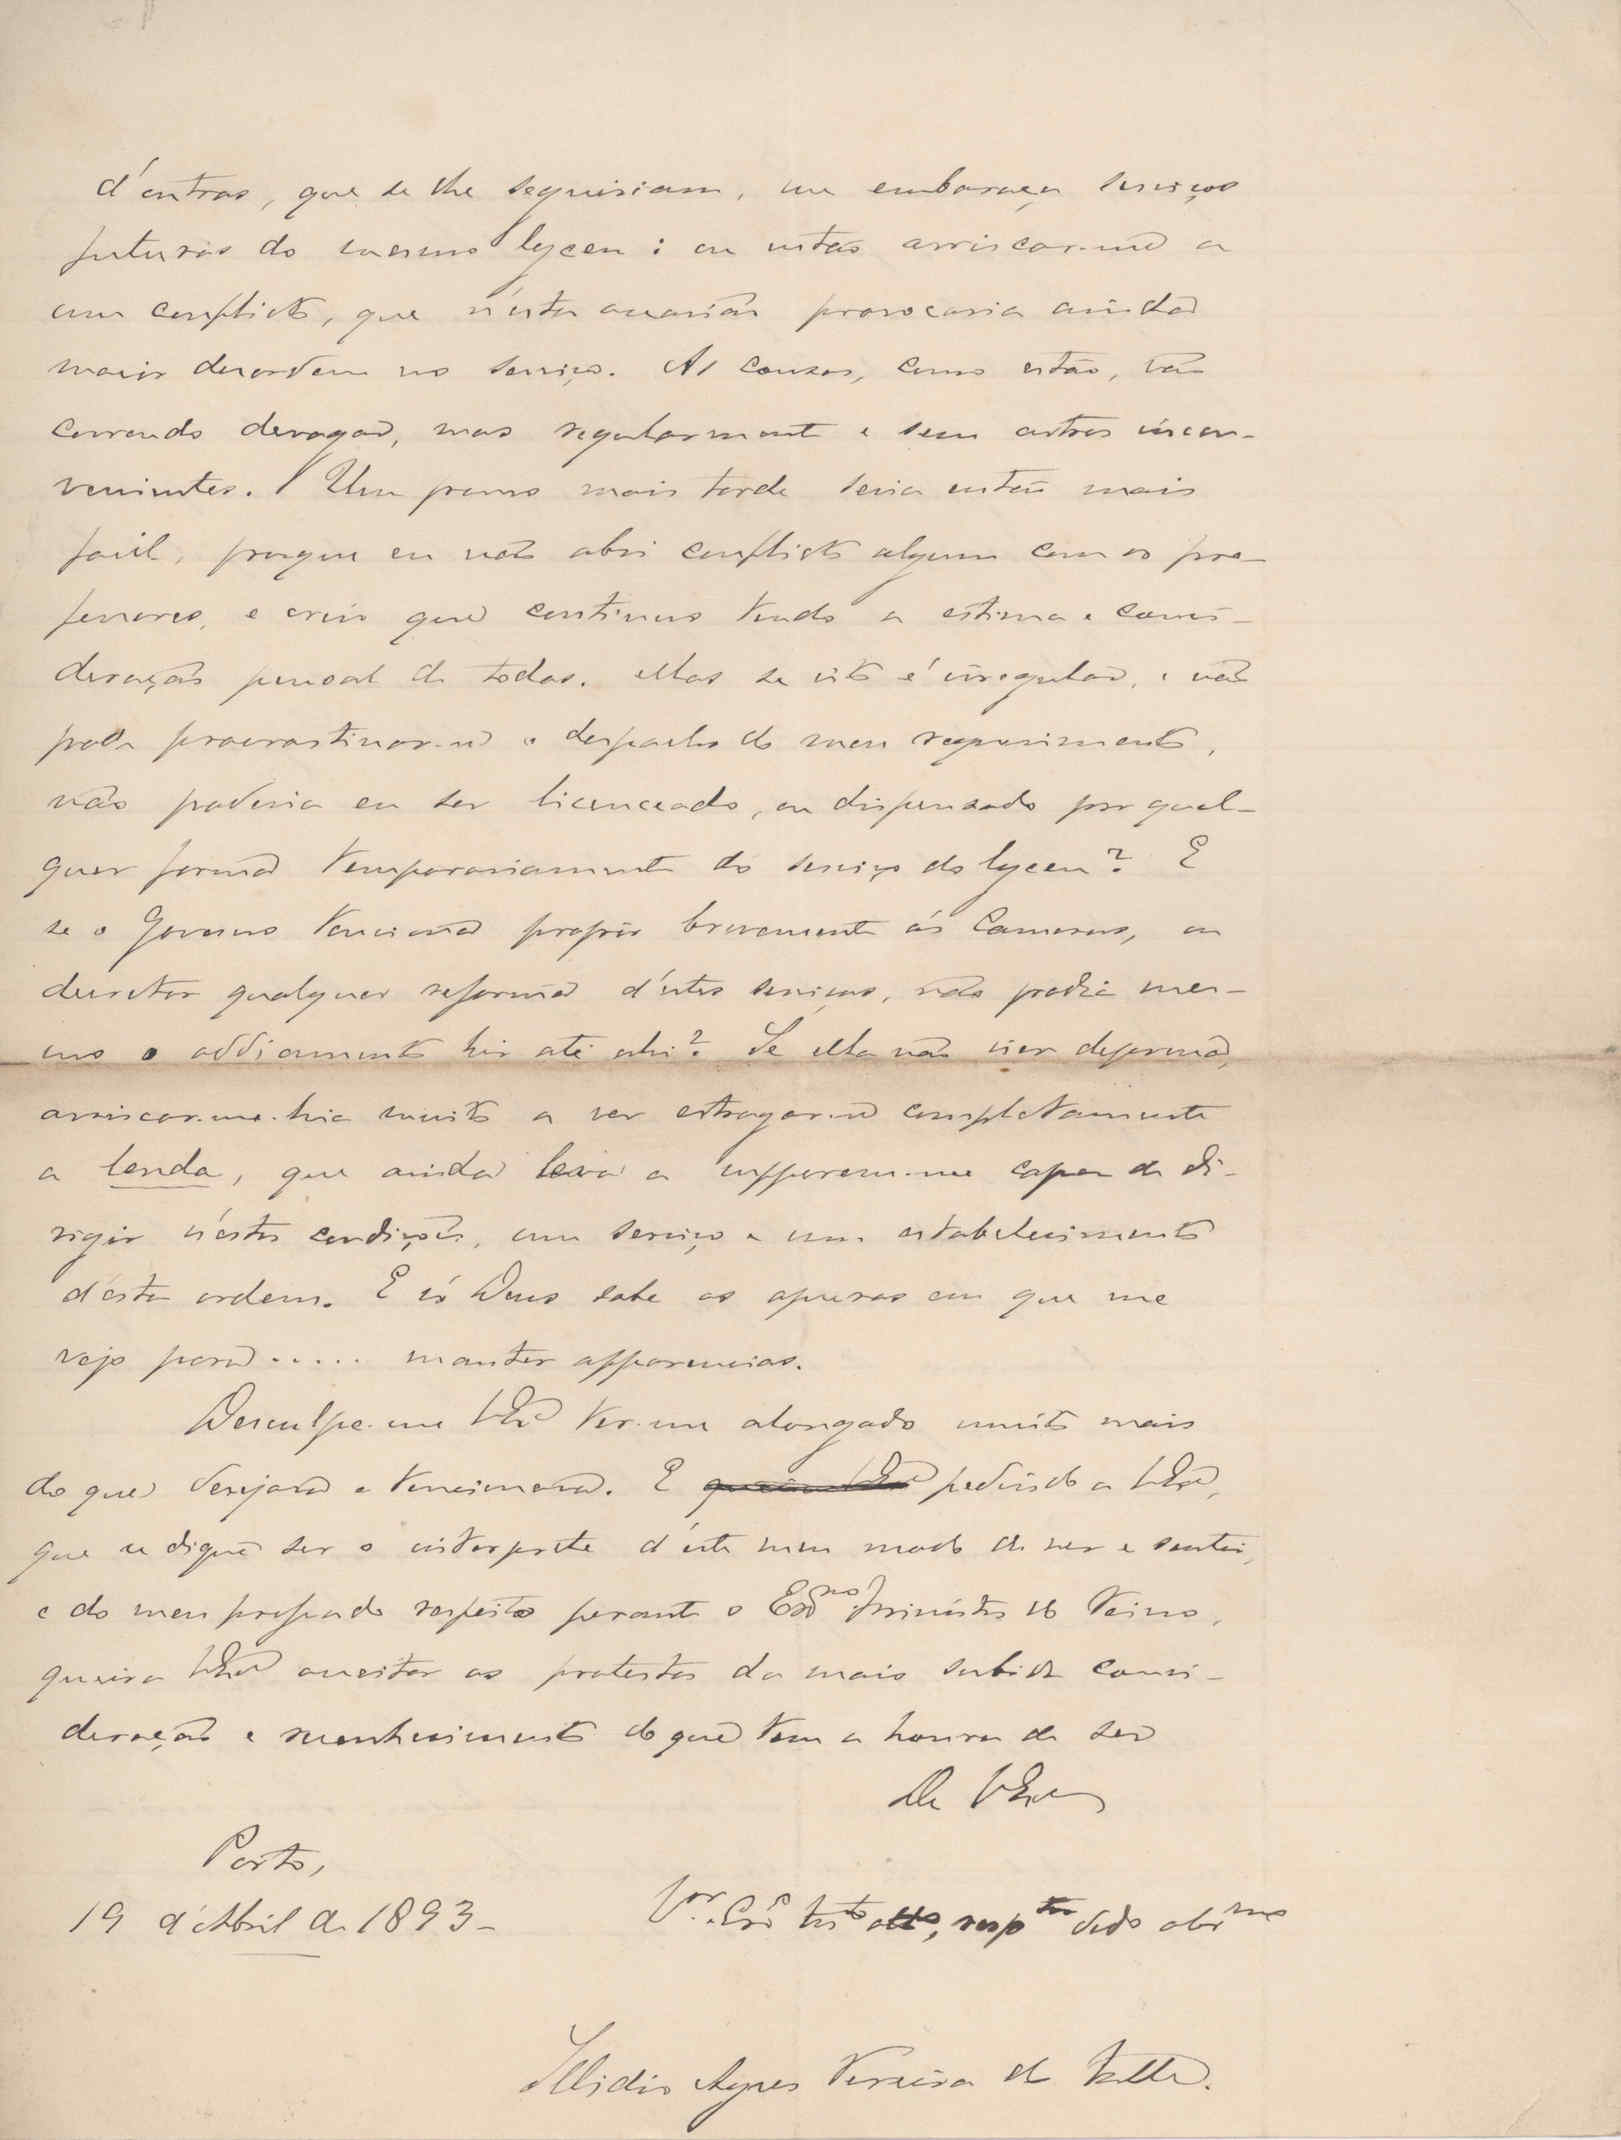 d'outras, que se lhe seguiriam, me embaraça serviços
futuros do mesmo lyceu; ou então arriscar-me a
um conflicto, que n'esta occasião provocaria ainda
maior desordem no serviço. As cousas, como estão, vão
correndo devagar, mas regularmente e sem outros incon-
venientes. Um pouco mais tarde seria então mais
facil, porque eu não abri conflicto algum com os pro-
fessores, e creio que continuo tendo a estima e consi-
deração pessoal de todos. Mas se isto é irregular, e não
póde procrastinar-se o despacho do meu requerimento,
não poderia eu ser licenceado, ou dispensado por qual-
quer forma temporariamente do serviço do lyceu? E
se o Governo tenciona propôr brevemente ás Camaras, ou
decretar qualquer reforma d'estes serviços, não podia mes-
mo o addiamento hir até ahi? Se ella não vier
arriscar-me-hia muito a ver estragar-se completamente
a lenda, que ainda leva a supporem-me capaz de di-
rigir n'estas condições, um serviço e um estabelecimento
d'esta ordem. E só Deus sabe os apuros em que me
vejo para ..... manter apparencias.
Desculpe-me VExª ter-me alongado muito mais
do que desejara e tencionara. E pedindo a VExª,
que se digne ser o interprete d'este meu modo de ver e sentir,
e do meu profundo respeito perante o Exmo Ministro do Reino,
queira VExª acceitar os protestos da mais subida consi-
deração e reconhecimento do que tem a honra de ser
De VExª
Porto,
19 d'Abril de 1893-
atto, resp
Illidio Ayres Pereira do Valle.